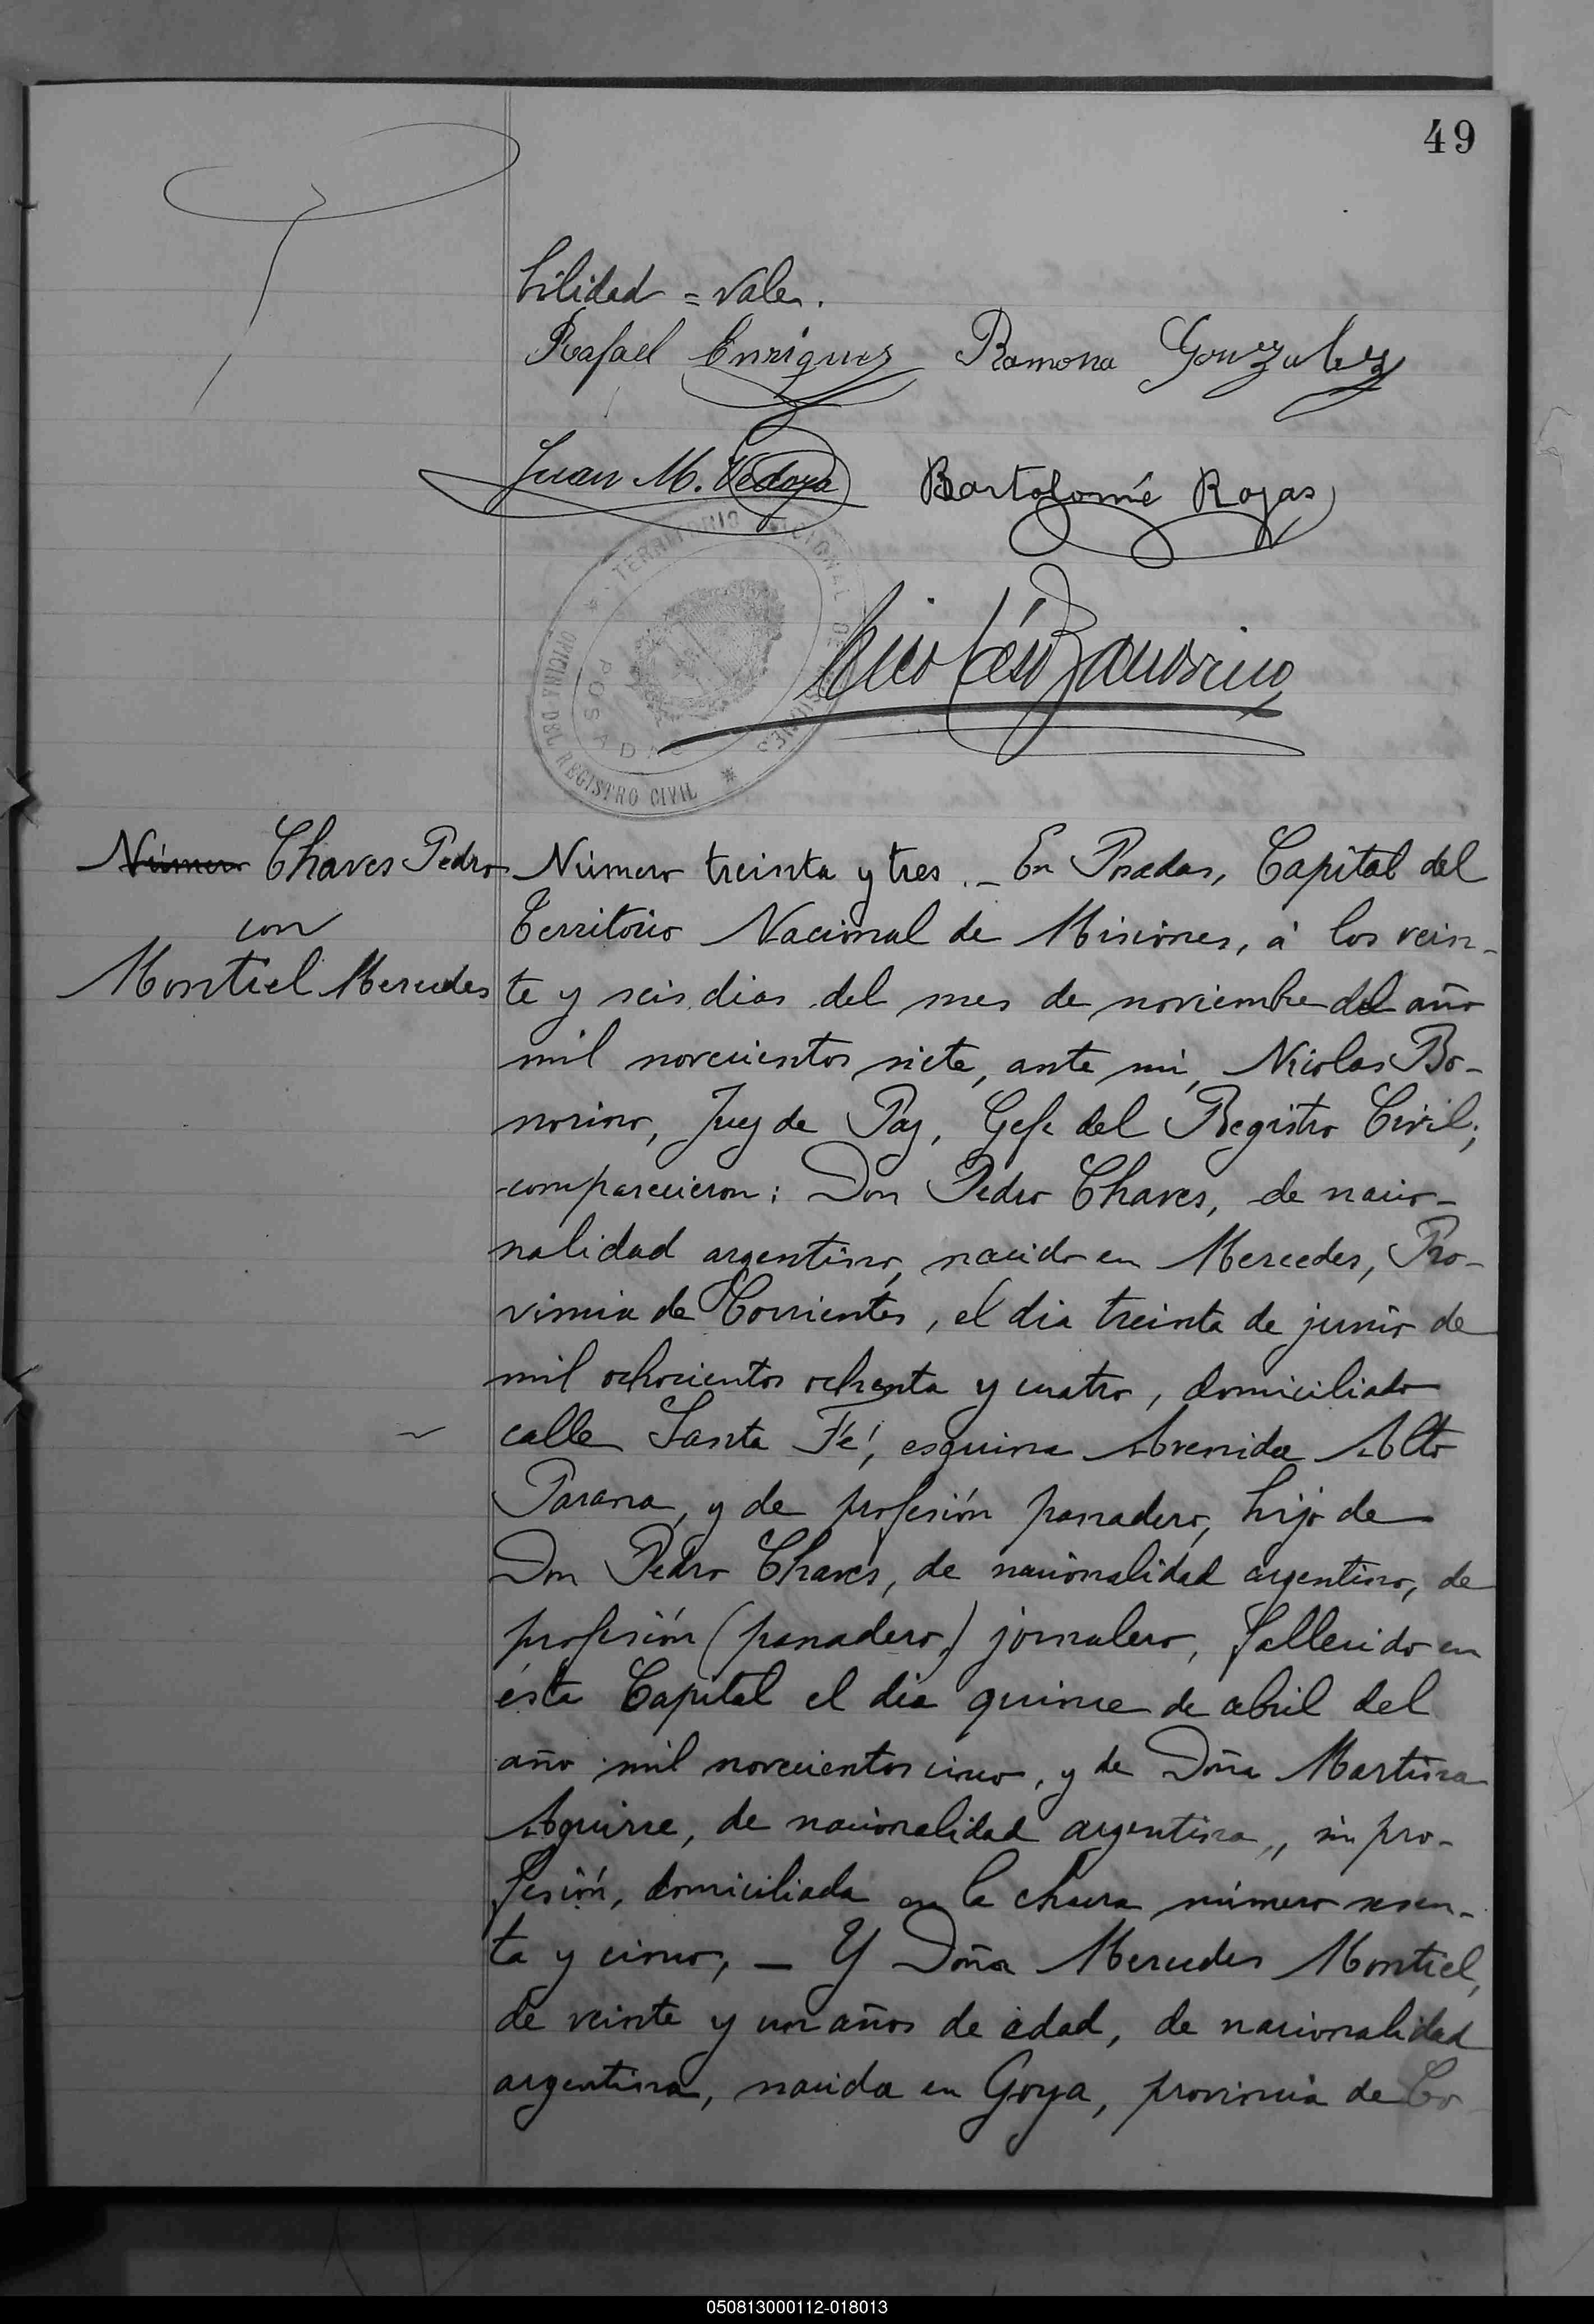 49
bilidad = Vale.
Rafael Enriquez Ramona Gonzalez
Juan M. Vedoya Bartolomé Rojas
* TERRITORIO NACIONAL DE MISIONES *
OFICINA DEL REGISTRO CIVIL
POSADAS
Nicolás Bonorino
Número Chaves Pedro
con
Montiel Mercedes
Número treinta y tres._ En Posadas, Capital del
Territorio Nacional de Misiones, á los vein-
te y seis dias del mes de noviembre del año
mil novecientos siete, ante mi, Nicolas Bo-
norino, Juez de Paz, Gefe del Registro Civil;
comparecieron: Don Pedro Chaves, de nacio-
nalidad argentino, nacido en Mercedes, Pro-
vincia de Corrientes, el dia treinta de junio de
mil ochocientos ochenta y cuatro, domiciliado
calle Santa Fé, esquina Avenida Alto
Parana, y de profesión panadero, hijo de
Don Pedro Chaves, de nacionalidad argentino, de
profesión (panadero) jornalero, fallecido en
ésta Capital el dia quince de abril del
año mil novecientos cinco, y de Doña Martina
Aguirre, de nacionalidad argentina, sin pro-
fesión, domiciliada en la chacra número sesen-
ta y cinco, _ Y Doña Mercedes Montiel,
de veinte y un años de edad, de nacionalidad
argentina, nacida en Goya, provincia de Co
050813000112-018013